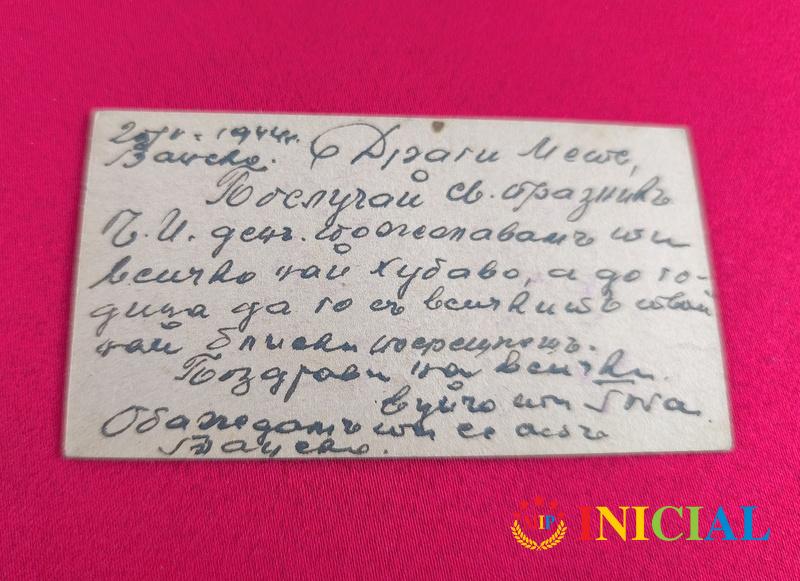 1944 г.
Банско. Драги Мете,
По случай св. празникъ
Ч. И. день. пожелавамъ ти
всичко най хубаво, а до го-
дина да го съ всичкитѣ твои
най близки посрещнешъ.
Поздрави на всички.
вуйчо ти
Обаждамъ ти се отъ
Банско.
VIP INICIAL